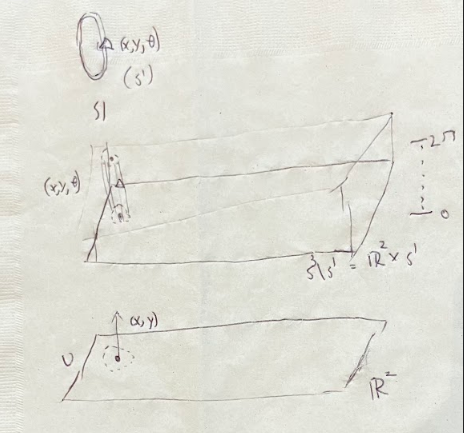 (x,y,θ)
(S¹)
S1
(x,y,θ)
2π
0
S³\S¹ = ℝ² × S¹
(x,y)
U
ℝ²